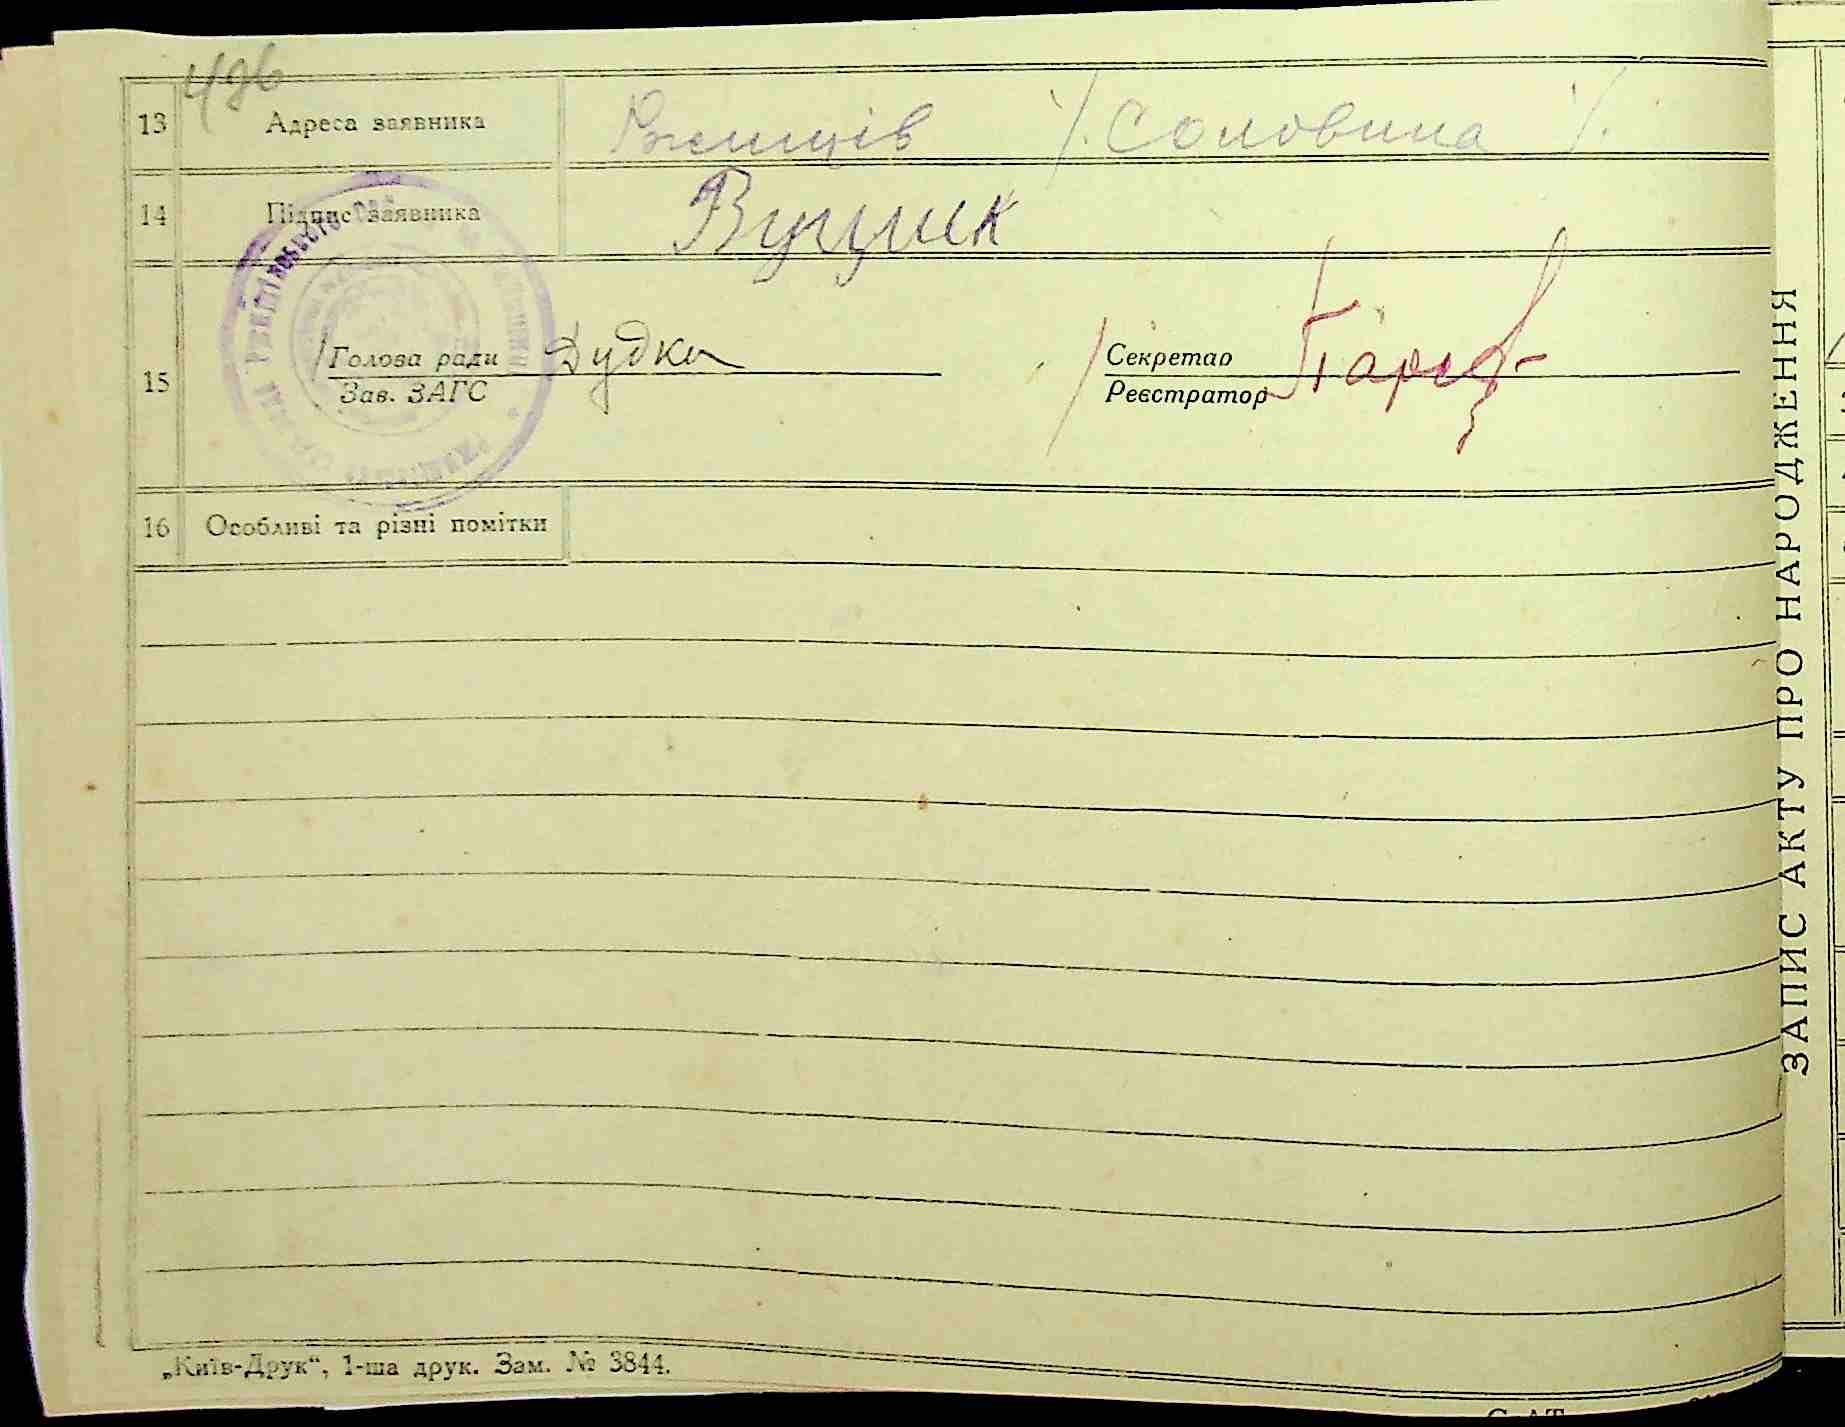 496
13 Адреса заявника Ржищів /. Соловина /.
14 Підпис заявника Вуцик
15 Голова ради Дудка Секретар
Зав. ЗАГС Реєстратор
16 Особливі та різні помітки
„Київ-Друк“, 1-ша друк. Зам. № 3844.
ЗАПИС АКТУ ПРО НАРОДЖЕННЯ